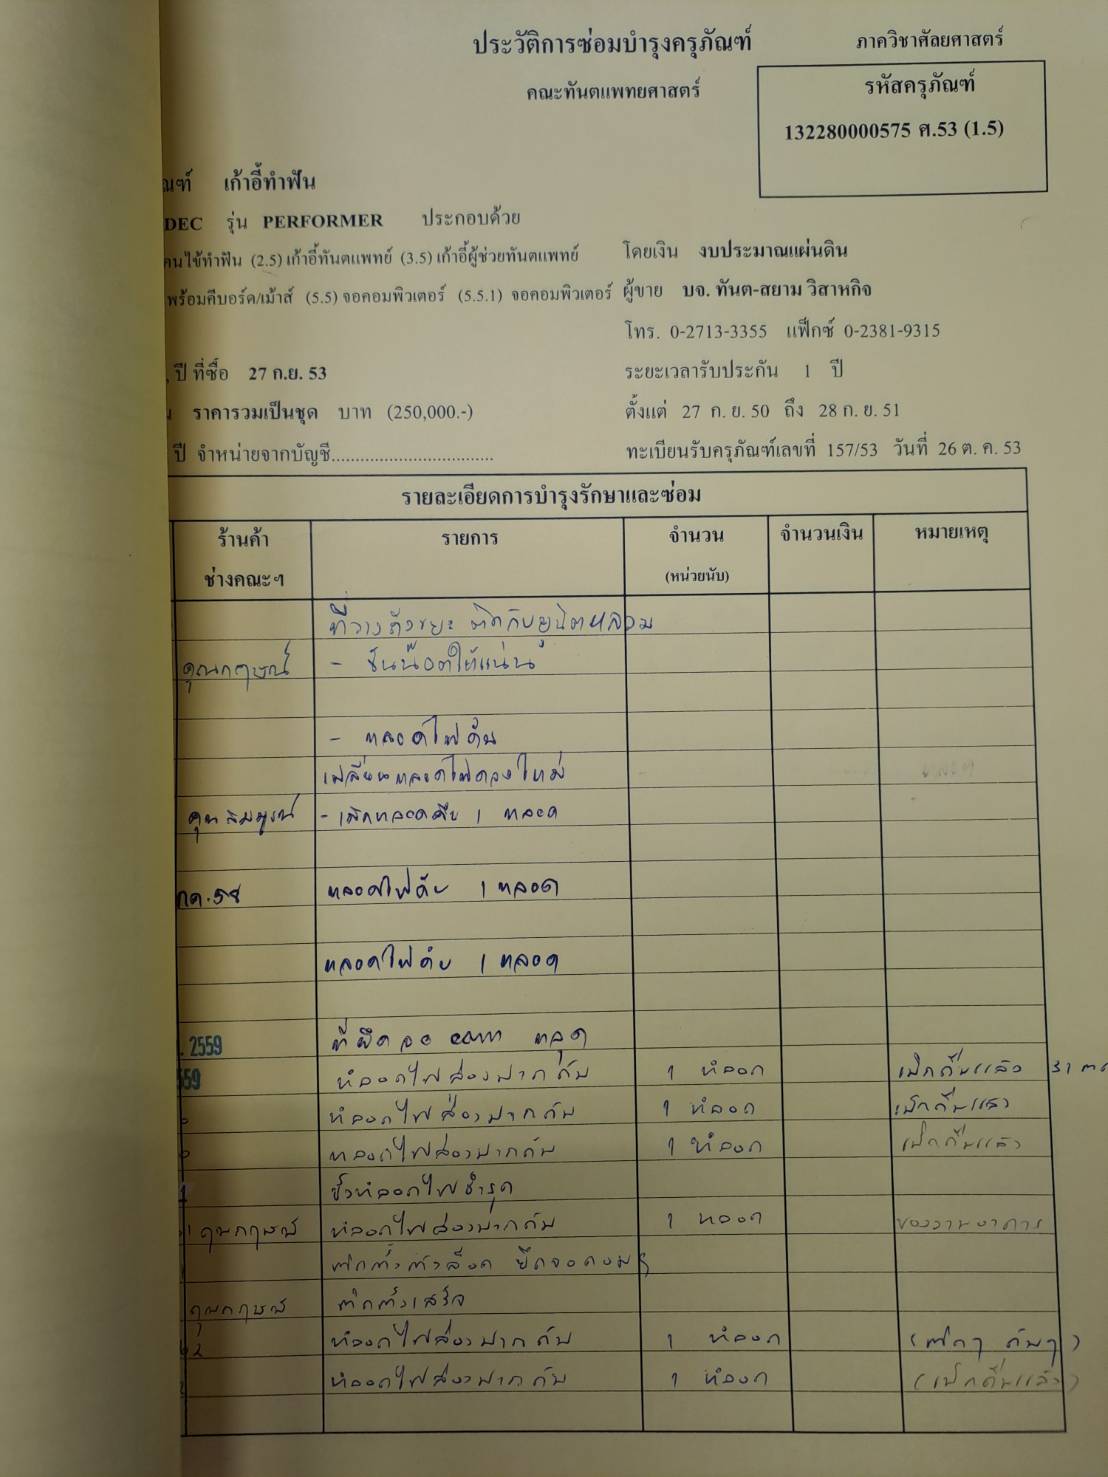 ประวัติการซ่อมบำรุงครุภัณฑ์ ภาควิชาศัลยศาสตร์
คณะทันตแพทยศาสตร์ รหัสครุภัณฑ์
132280000575 ศ.53 (1.5)
ณฑ์ เก้าอี้ทำฟัน
DEC รุ่น PERFORMER ประกอบด้วย
คนไข้ทำฟัน (2.5) เก้าอี้ทันตแพทย์ (3.5) เก้าอี้ผู้ช่วยทันตแพทย์ โดยเงิน งบประมาณแผ่นดิน
พร้อมคีบอร์ด/เม้าส์ (5.5) จอคอมพิวเตอร์ (5.5.1) จอคอมพิวเตอร์ ผู้ขาย บจ. ทันต-สยาม วิสาหกิจ
โทร. 0-2713-3355 แฟ็กซ์ 0-2381-9315
ปี ที่ซื้อ 27 ก.ย. 53 ระยะเวลารับประกัน 1 ปี
น ราคารวมเป็นชุด บาท (250,000.-) ตั้งแต่ 27 ก.ย. 50 ถึง 28 ก.ย. 51
ปี จำหน่ายจากบัญชี................................. ทะเบียนรับครุภัณฑ์เลขที่ 157/53 วันที่ 26 ต.ค. 53
รายละเอียดการบำรุงรักษาและซ่อม
ร้านค้า รายการ จำนวน จำนวนเงิน หมายเหตุ
ช่างคณะฯ (หน่วยนับ)
ที่วางถังขยะ ติดกับยูนิตหลวม
คุณกฤษณ์ - ขันน๊อตให้แน่น
- หลอดไฟดับ
เปลี่ยนหลอดไฟดวงใหม่
คุณสมบูรณ์ - เบิกหลอดคืน 1 หลอด
กค.58 หลอดไฟดับ 1 หลอด
หลอดไฟดับ 1 หลอด
. 2559 ที่ยึดจอ คอม หลุด
559 หลอดไฟส่องปากดับ 1 หลอด เบิกคืนแล้ว 31
หลอดไฟส่องปากดับ 1 หลอด เบิกคืนแล้ว
หลอดไฟส่องปากดับ 1 หลอด เบิกคืนแล้ว
ขั้วหลอดไฟชำรุด
คุณกฤษณ์ หลอดไฟส่องปากดับ 1 หลอด ของงานอาคาร
ติดตั้งตัวล็อค ยึดจอคอมฯ
คุณกฤษณ์ ติดตั้งเสร็จ
หลอดไฟส่องปากดับ 1 หลอด (ติดๆ ดับๆ)
หลอดไฟส่องปากดับ 1 หลอด (เบิกคืนแล้ว)